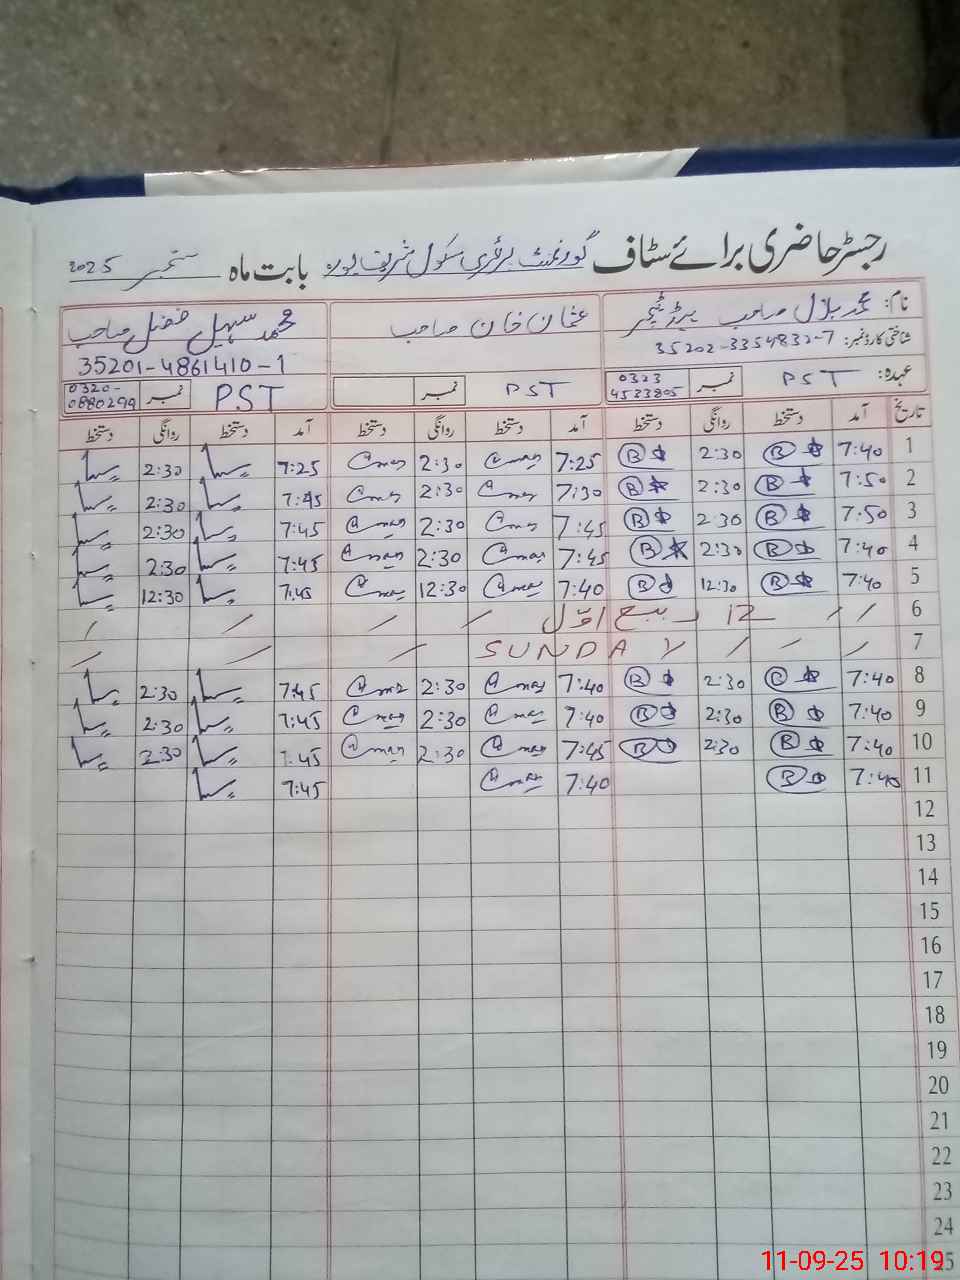 رجسٹر حاضری برائے سٹاف گورنمنٹ پرائمری سکول شریف پورہ بابت ماہ ستمبر 2025
نام: محمد بلال صاحب ہیڈ ٹیچر
شناختی کارڈ نمبر: 35202-3354832-7
عہدہ: PST نمبر 0323 4533805
عثمان خان صاحب
PST نمبر
محمد سہیل فضل صاحب
35201-4861410-1
PST نمبر 0320-0880299
تاریخ آمد دستخط روانگی دستخط آمد دستخط روانگی دستخط آمد دستخط روانگی دستخط
1 7:40 B 2:30 B 7:25 2:30 7:25 2:30
2 7:50 B 2:30 B 7:30 2:30 7:45 2:30
3 7:50 B 2:30 B 7:45 2:30 7:45 2:30
4 7:40 B 2:30 B 7:45 2:30 7:45 2:30
5 7:40 B 12:30 B 7:40 12:30 7:45 12:30
6 12 ربیع اوّل
7 SUNDAY
8 7:40 B 2:30 B 7:40 2:30 7:45 2:30
9 7:40 B 2:30 B 7:40 2:30 7:45 2:30
10 7:40 B 2:30 B 7:45 2:30 7:45 2:30
11 7:40 B 7:40 7:45
12
13
14
15
16
17
18
19
20
21
22
23
24
25
11-09-25 10:19